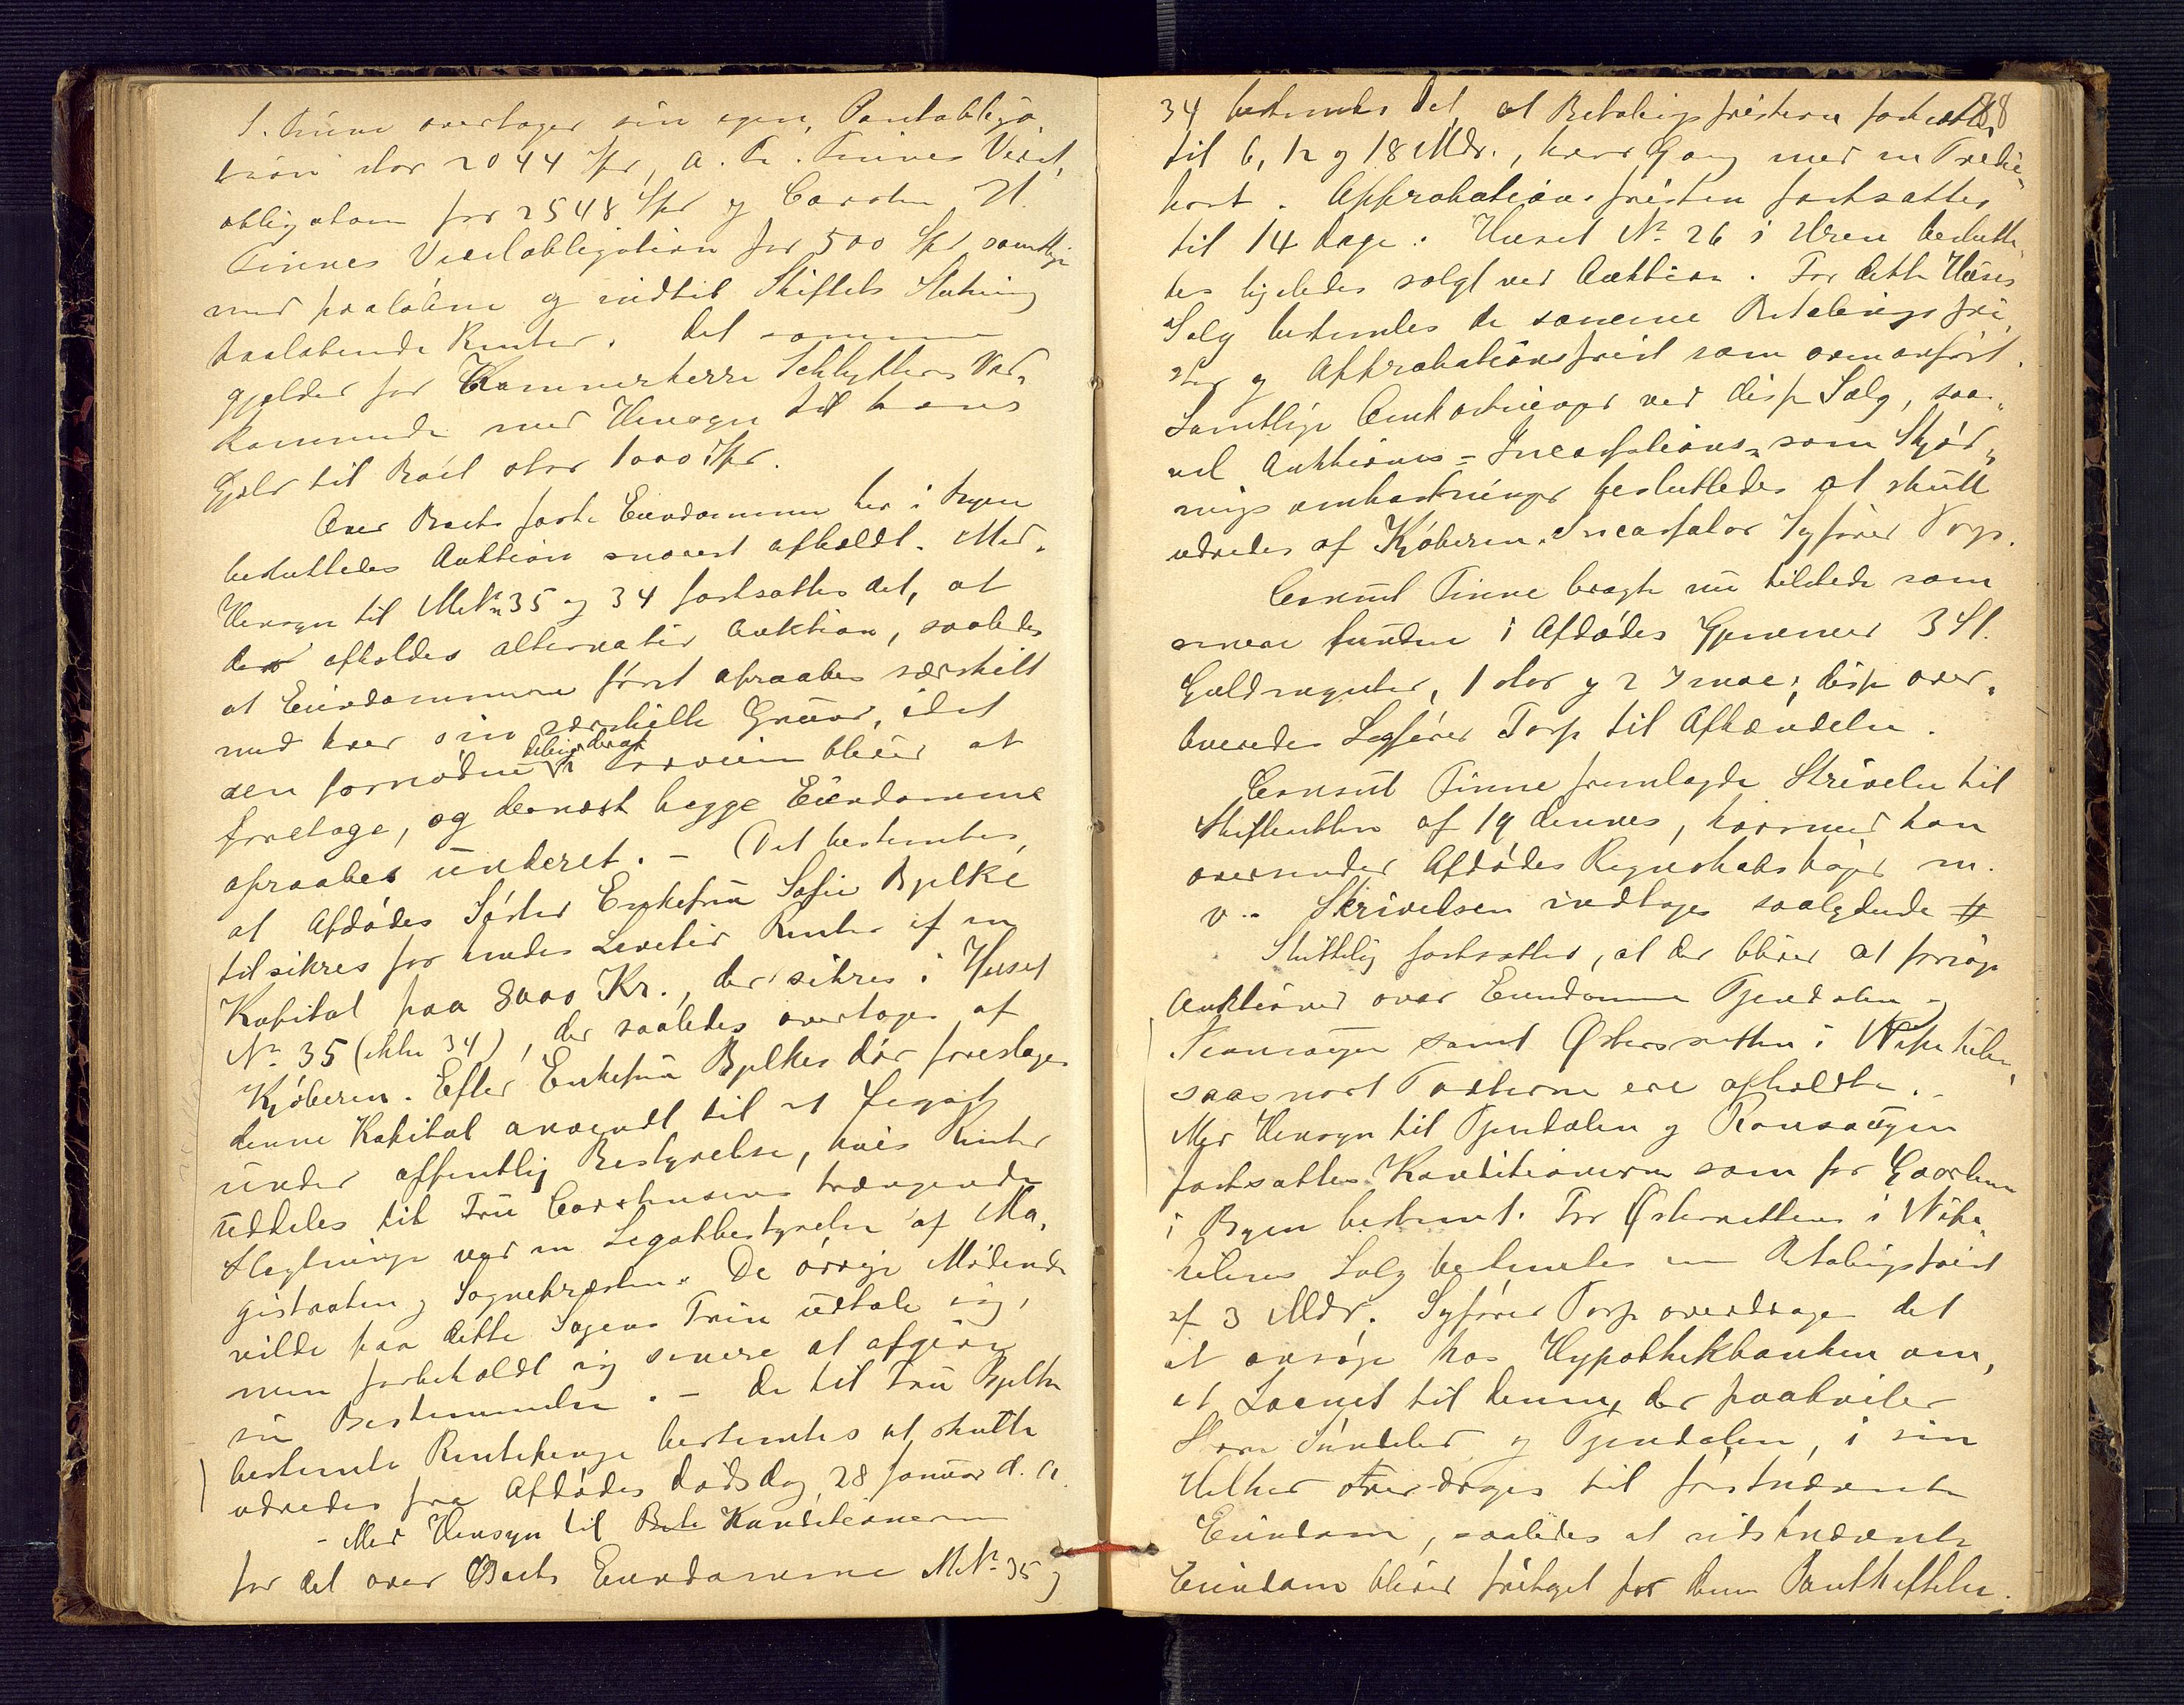 overtager sin egen Pantobliga
tion stor 2044 Spd, A. Chr. Finnes Vexel,
obligation for 2548 Spd og Carsten H.
Finnes Vexelobligation for 500 Spd, samtlige
med paaløbne og indtil Skiftets Slutning
paaløbende Renter. Det samme
gjælder for Kammerherre Schlytters Ved,
kommende med Hensyn til hans
Gjæld til Boet stor 1000 Spd.
Over Boets faste Eiendomme her i Byen
besluttedes Auktion snarest afholdt. Med
Hensyn til MNo 35 og 34 fastsattes det, at
der afholdes alternativ Auktion, saaledes
at Eiendommene først opraabes særskilt
med hver sin særskilte Grund, idet
den fornødne Delingsforretning bliver at
foretage, og dernæst begge Eiendomme
opraabes underet. – Det bestemtes,
at Afdødes Søster Enkefru Sofie Bjelke
tilsikres for hendes Levetid Renter af en
Kapital paa 8000 Kr., der sikres i Huset
No 35 (ikke 34), der saaledes overtages af
Kjøberen. Efter Enkefru Bjelkes død foreslages
denne Kapital anvendt til et Legat
under offentlig Bestyrelse, hvis Renter
uddeles til Fru Carstensens trængende
Slægtninge ved en Legatbestyrelse af Ma,
gistraten og Sognepræsten. De øvrige Mødende
vilde paa dette Sagens Trin udtale sig,
men forbeholdt sig senere at afgive
sin Bestemmelse. – De til Fru Bjelke
bestemte Rentepenge bestemtes at skulle
udredes fra Afdødes dødsdag, 28 Januar d. A.
– Med Hensyn til Konditionerne
for det over Boets Eiendomme MNo 35 og
88
34 bestemtes det, at Betalingsfristerne fastsættes
til 6, 12 og 18 Mdr., hver Gang med en Tredie,
part. Approbationsfristen fastsattes
til 14 dage. Huset No 26 i Uren beslutte
des ligeledes solgt ved Auktion. For dette Huses
Salg bestemtes de samme Betalingsfri,
ster og Approbationsfrist som ovenanført.
Samtlige Omkostninger ved disse Salg, saa,
vel Auktions- Incassations- som Skjød,
nings omkostninger besluttedes at skulle
udredes af Kjøberen. Incassator Sagfører Torp.
Consul Finne bragte nu tilstede som
senere funden i Afdødes Gjemmer 3 St.
Guldmynter, 1 stor og 2 smaa; disse over,
leveredes Sagfører Torp til Afhændelse.
Consul Finne fremlagde Skrivelse til
Skifteretten af 19 dennes, hvormed han
oversender Afdødes Regnskabsbøger m.
v. Skrivelsen indtages saalydende #
Skuttelig fastsattes, at der bliver at foretage
Auktioner over Eiendomme Tjendalen og
Ransaugen samt Østersretten i Vipekilen,
saasnart Taxterne ere afholdte.
Med Hensyn til Tjendalen og Ransaugen
fastsattes Konditionerne som for Gaardene
i Byen bestemt. For Østersrettens i Vipe
kilens Salg bestemtes en Betalingsfrist
af 3 Mdr. Sagfører Torp overdrages det
at ansøge hos Hypothekbanken om,
at Laanet til denne, der paahviler
og Tjendalen, i sin
Helhed overdrages til førstnævnte
Eiendom, saaledes at sidstnævnte
Eiendom bliver fritaget for denne Pantheftelse.